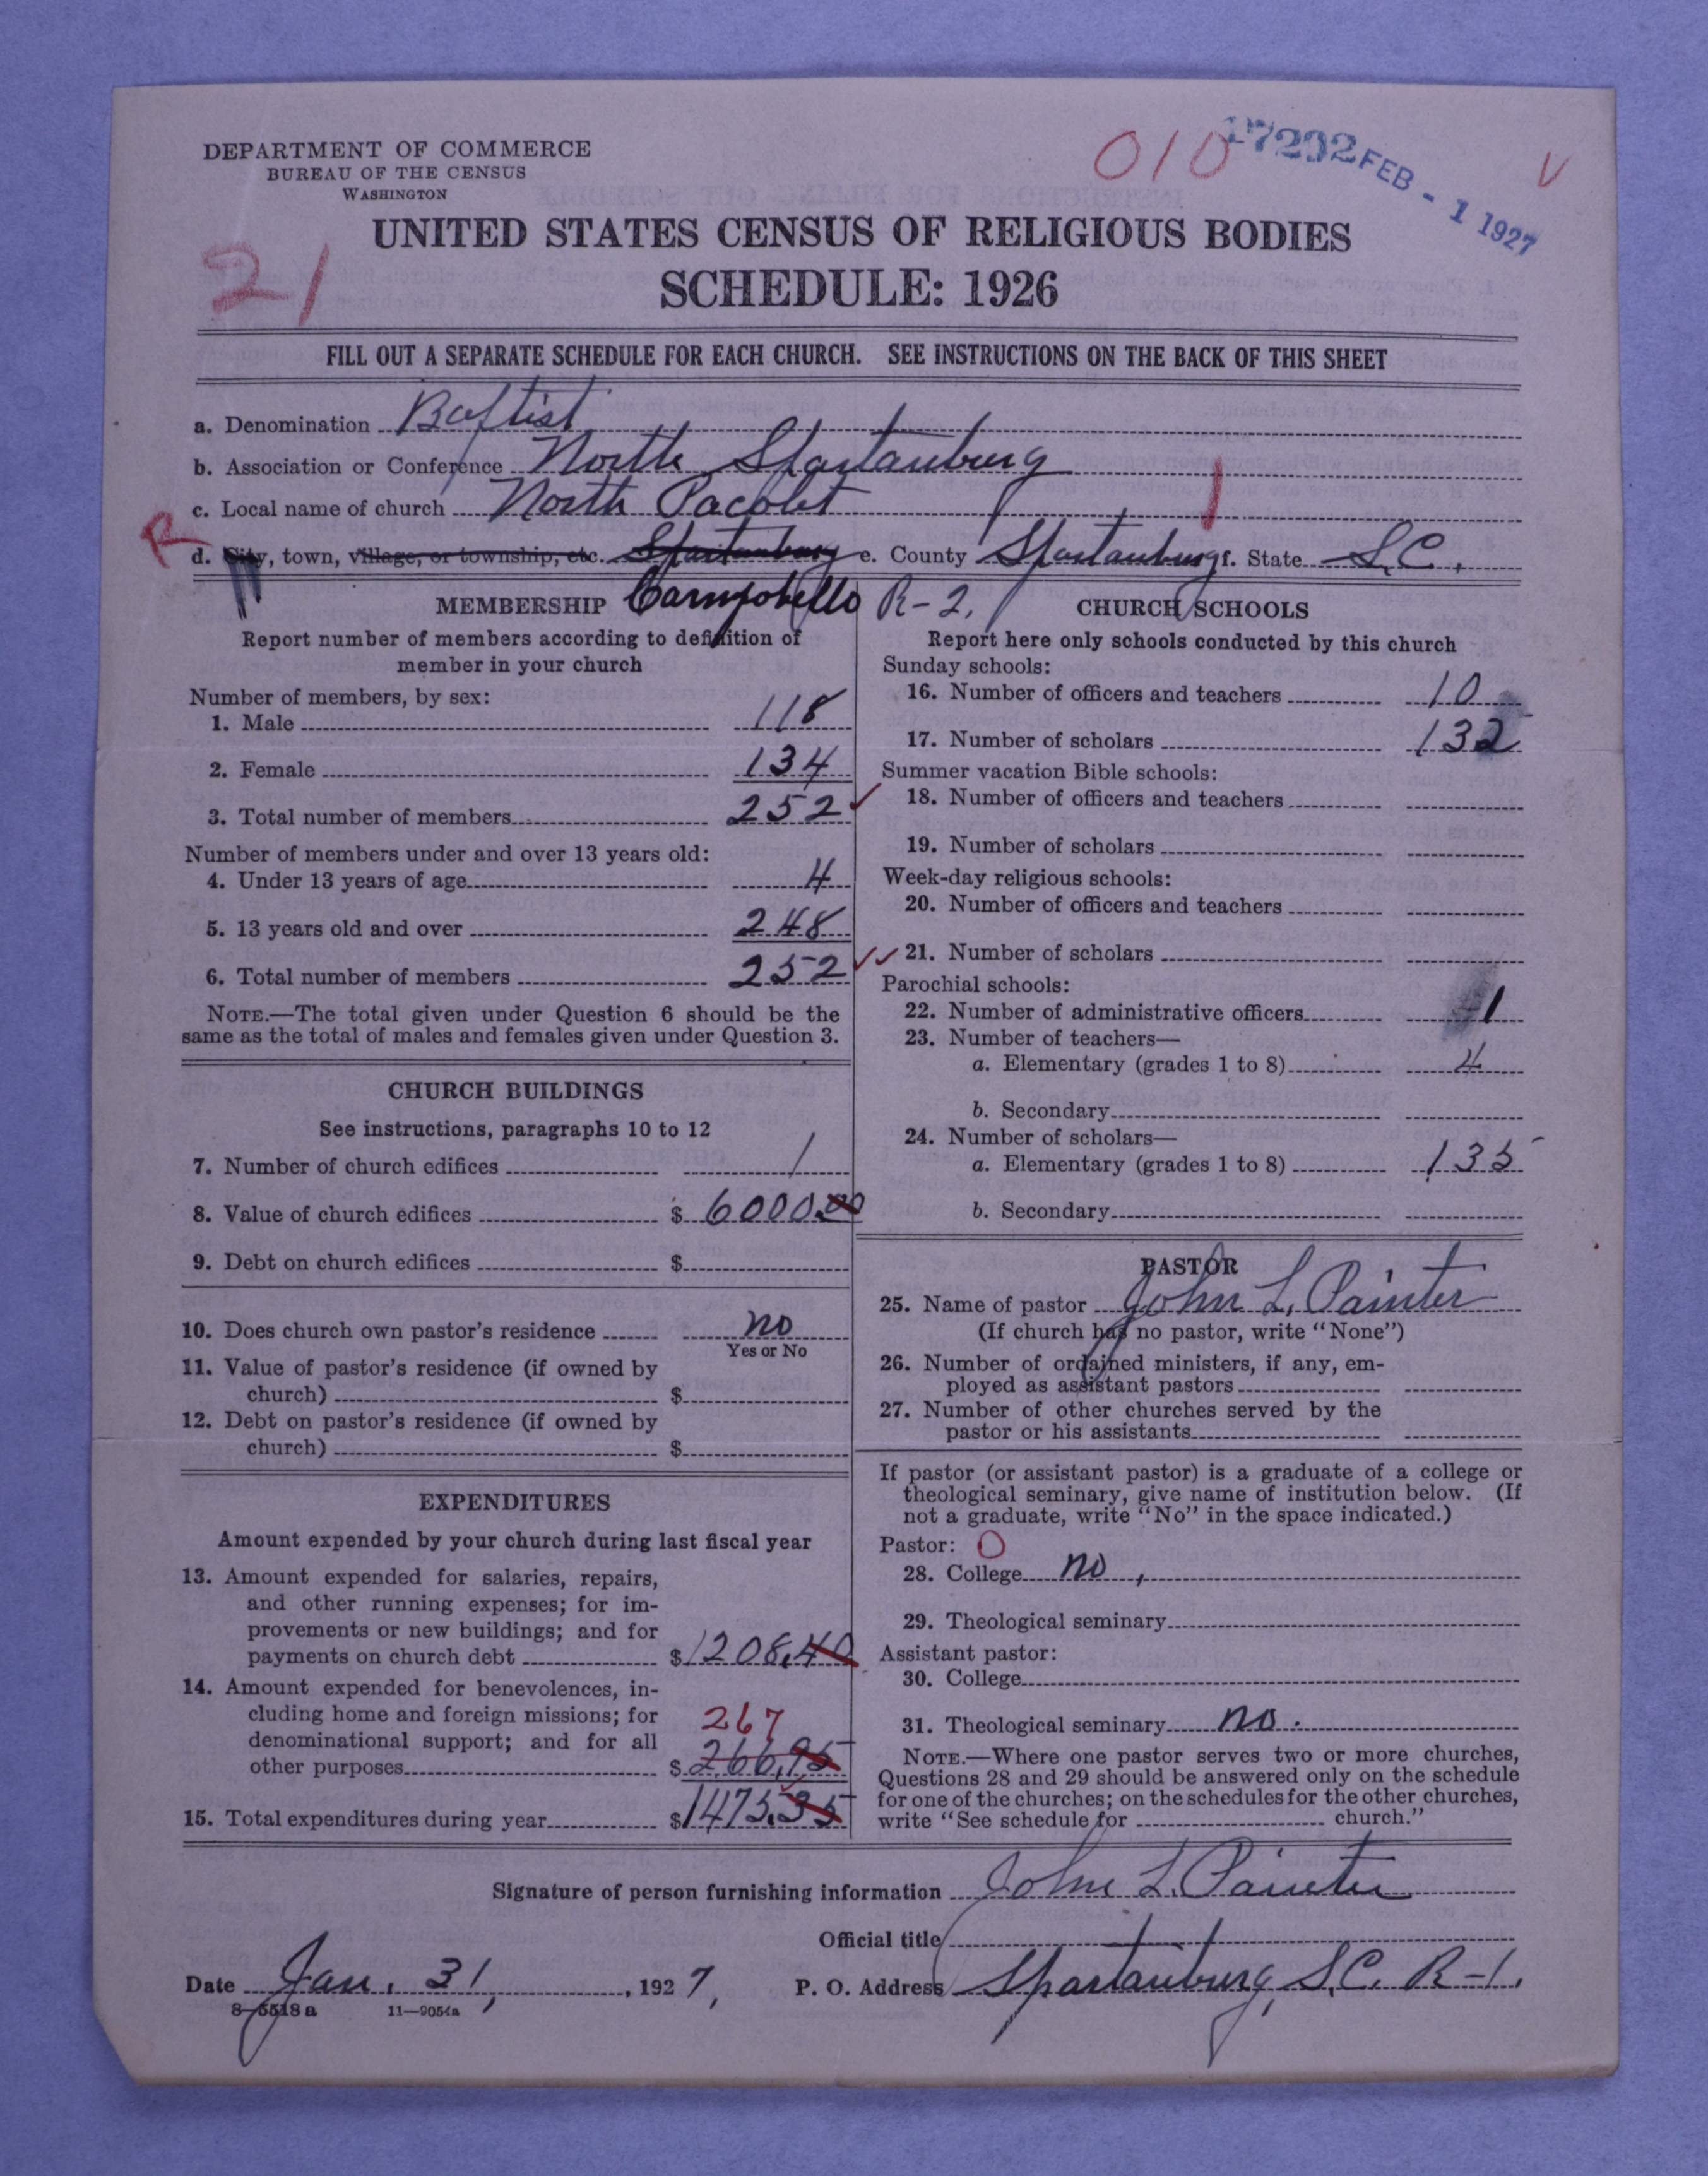 DEPARTMENT OF COMMERCE
BUREAU OF THE CENSUS
WASHINGTON
010
17202 FEB - 1 1927
V
UNITED STATES CENSUS OF RELIGIOUS BODIES
21
SCHEDULE: 1926
FILL OUT A SEPARATE SCHEDULE FOR EACH CHURCH. SEE INSTRUCTIONS ON THE BACK OF THIS SHEET
a. Denomination Baptist
b. Association or Conference North Spartanburg
c. Local name of church North Pacolet
R d. City, town, village, or township, etc. Spartanburg e. County Spartanburg f. State S.C.
Campobello R-2.
MEMBERSHIP
Report number of members according to definition of
member in your church
Number of members, by sex:
1. Male 118
2. Female 134
3. Total number of members 252
Number of members under and over 13 years old:
4. Under 13 years of age 4
5. 13 years old and over 248
6. Total number of members 252
NOTE.—The total given under Question 6 should be the
same as the total of males and females given under Question 3.
CHURCH BUILDINGS
See instructions, paragraphs 10 to 12
7. Number of church edifices 1
8. Value of church edifices $ 6000.00
9. Debt on church edifices $
10. Does church own pastor's residence no
Yes or No
11. Value of pastor's residence (if owned by
church) $
12. Debt on pastor's residence (if owned by
church) $
EXPENDITURES
Amount expended by your church during last fiscal year
13. Amount expended for salaries, repairs,
and other running expenses; for im-
provements or new buildings; and for
payments on church debt $ 1208.40
14. Amount expended for benevolences, in-
cluding home and foreign missions; for
denominational support; and for all
267
other purposes $ 266.95
15. Total expenditures during year $ 1475.35
CHURCH SCHOOLS
Report here only schools conducted by this church
Sunday schools:
16. Number of officers and teachers 10
17. Number of scholars 132
Summer vacation Bible schools:
18. Number of officers and teachers
19. Number of scholars
Week-day religious schools:
20. Number of officers and teachers
21. Number of scholars
Parochial schools:
22. Number of administrative officers 1
23. Number of teachers—
a. Elementary (grades 1 to 8) 4
b. Secondary
24. Number of scholars—
a. Elementary (grades 1 to 8) 135
b. Secondary
PASTOR
25. Name of pastor John L. Painter
(If church has no pastor, write "None")
26. Number of ordained ministers, if any, em-
ployed as assistant pastors
27. Number of other churches served by the
pastor or his assistants
If pastor (or assistant pastor) is a graduate of a college or
theological seminary, give name of institution below. (If
not a graduate, write "No" in the space indicated.)
Pastor: 0
28. College no,
29. Theological seminary
Assistant pastor:
30. College
31. Theological seminary no.
NOTE.—Where one pastor serves two or more churches,
Questions 28 and 29 should be answered only on the schedule
for one of the churches; on the schedules for the other churches,
write "See schedule for church."
Signature of person furnishing information John L. Painter
Official title
Date Jan. 31, 1927, P. O. Address Spartanburg, S.C. R-1.
8-5518a 11-9054a